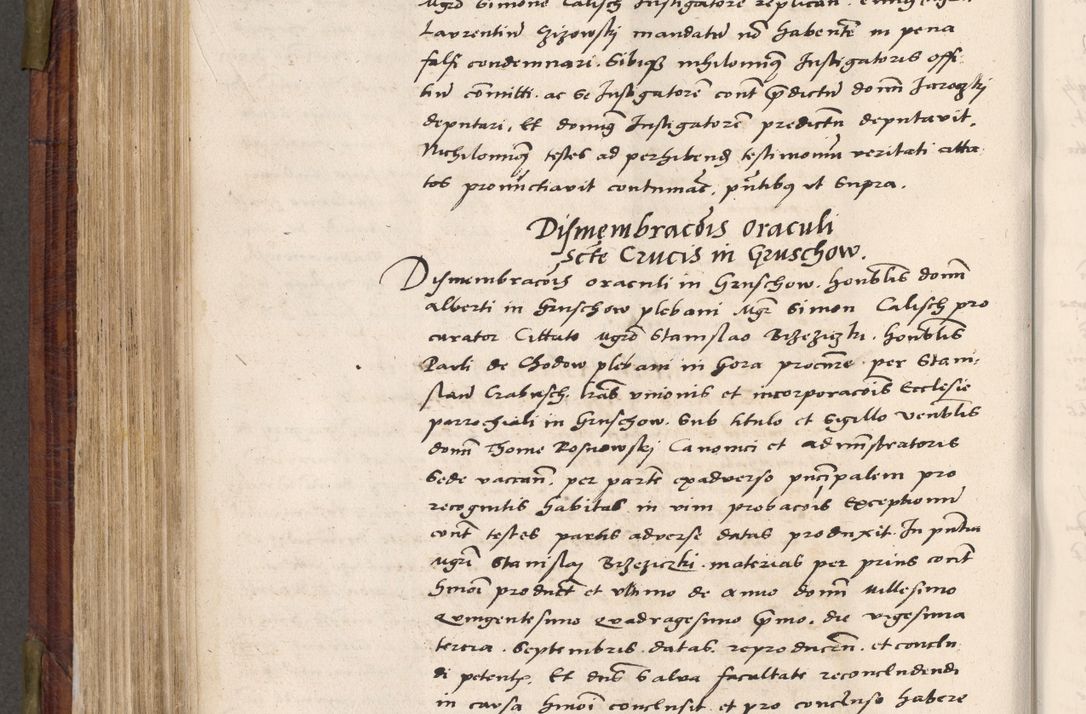 Laurentiu Gizowski mandatu no habente in pena
falsi condemnari. Sibiq3 nihilominq Instigatoris offi
tiu comitti. ac se Instigatore cont predictu domi
deputari. Et dominq Instigatore predictu deputavit.
Nichilominq testes ad perhibend testimoniu veritati citta
tos pronuctiavit contumac. pntibq ut Supra.
Dismembracois oraculi
scte Crucis in Gruschow.
Dismembracois oraculi in Gruschow. honblis domi
alberti in Gruschow plebani Mgr Simon Calisch pro
curator Cittato Mgro Stanislao honblis
Pauli de Chodow plebani in Gora procure. per Stani
slau Crabusch. lras unionis et incorporacois Ecclesie
parrochiali in Gruschow. Sub titulo et Sigillo Venblis
domi Thome Rosnowskj Canonici et administratoris
Sede vaccan. per parte exadverso principalem pro
recognitis habitas in vim probacois Exceptioni
cont testes partis adverse datas produxit. In pntia
Mgri Stanislaj Brzeziczki. materias per prius cont
hmoi product et ultimo de anno domi Millesimo
Quingentesimo Quadragesimo primo. die vigesima
tercia. Septembris. datas. reproducen. et conclu
di petent. Et dns Salva facultate reconcludendi
in causa hmoi conclusit. et pro concluso habere